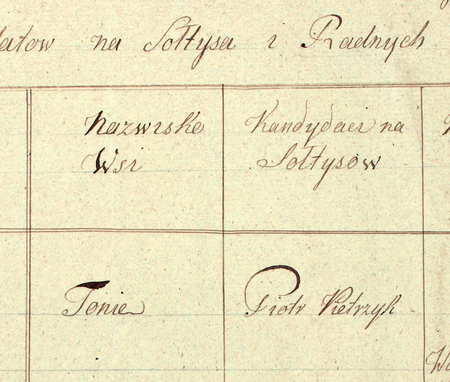 datow na Sołtysa i Radnych
Nazwisko
Wsi
Kandydaci na
Sołtysow
Tonie
Piotr Pietrzyk